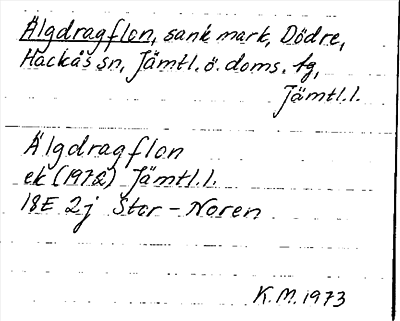 Älgdragflon, sank mark, Dödre,
Hackås sn, Jämtl. ö. doms. tg,
Jämtl.l.
Älgdragflon
ek (1972) Jämtl.l.
18E 2j Stor-Noren
K.M. 1973